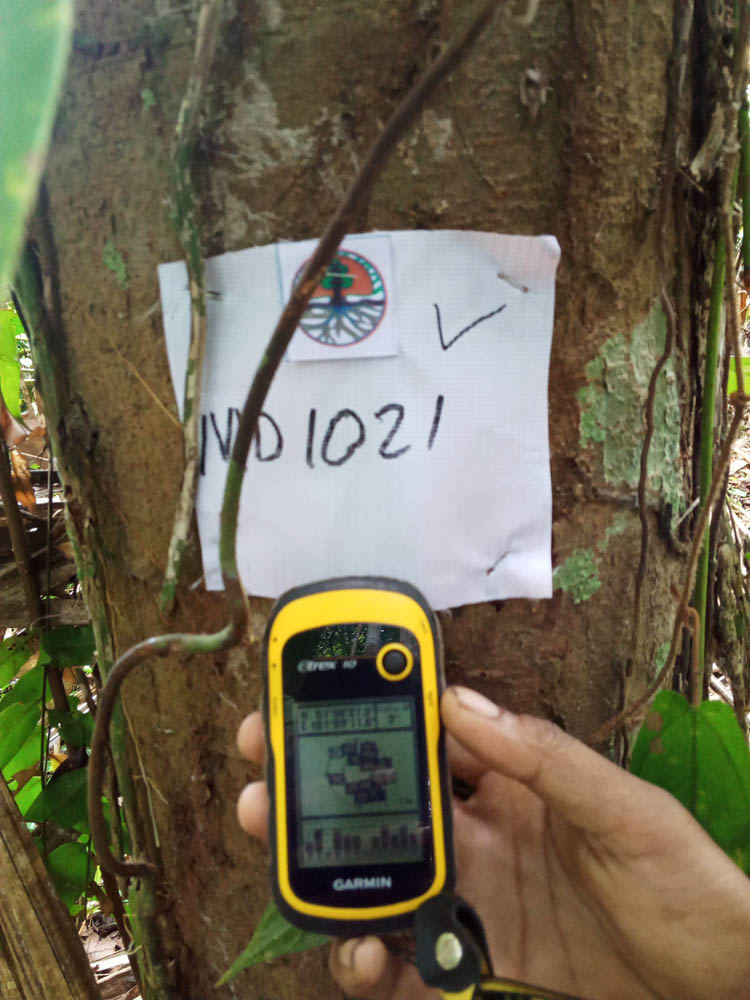 ND 1021
eTrex 10
GARMIN